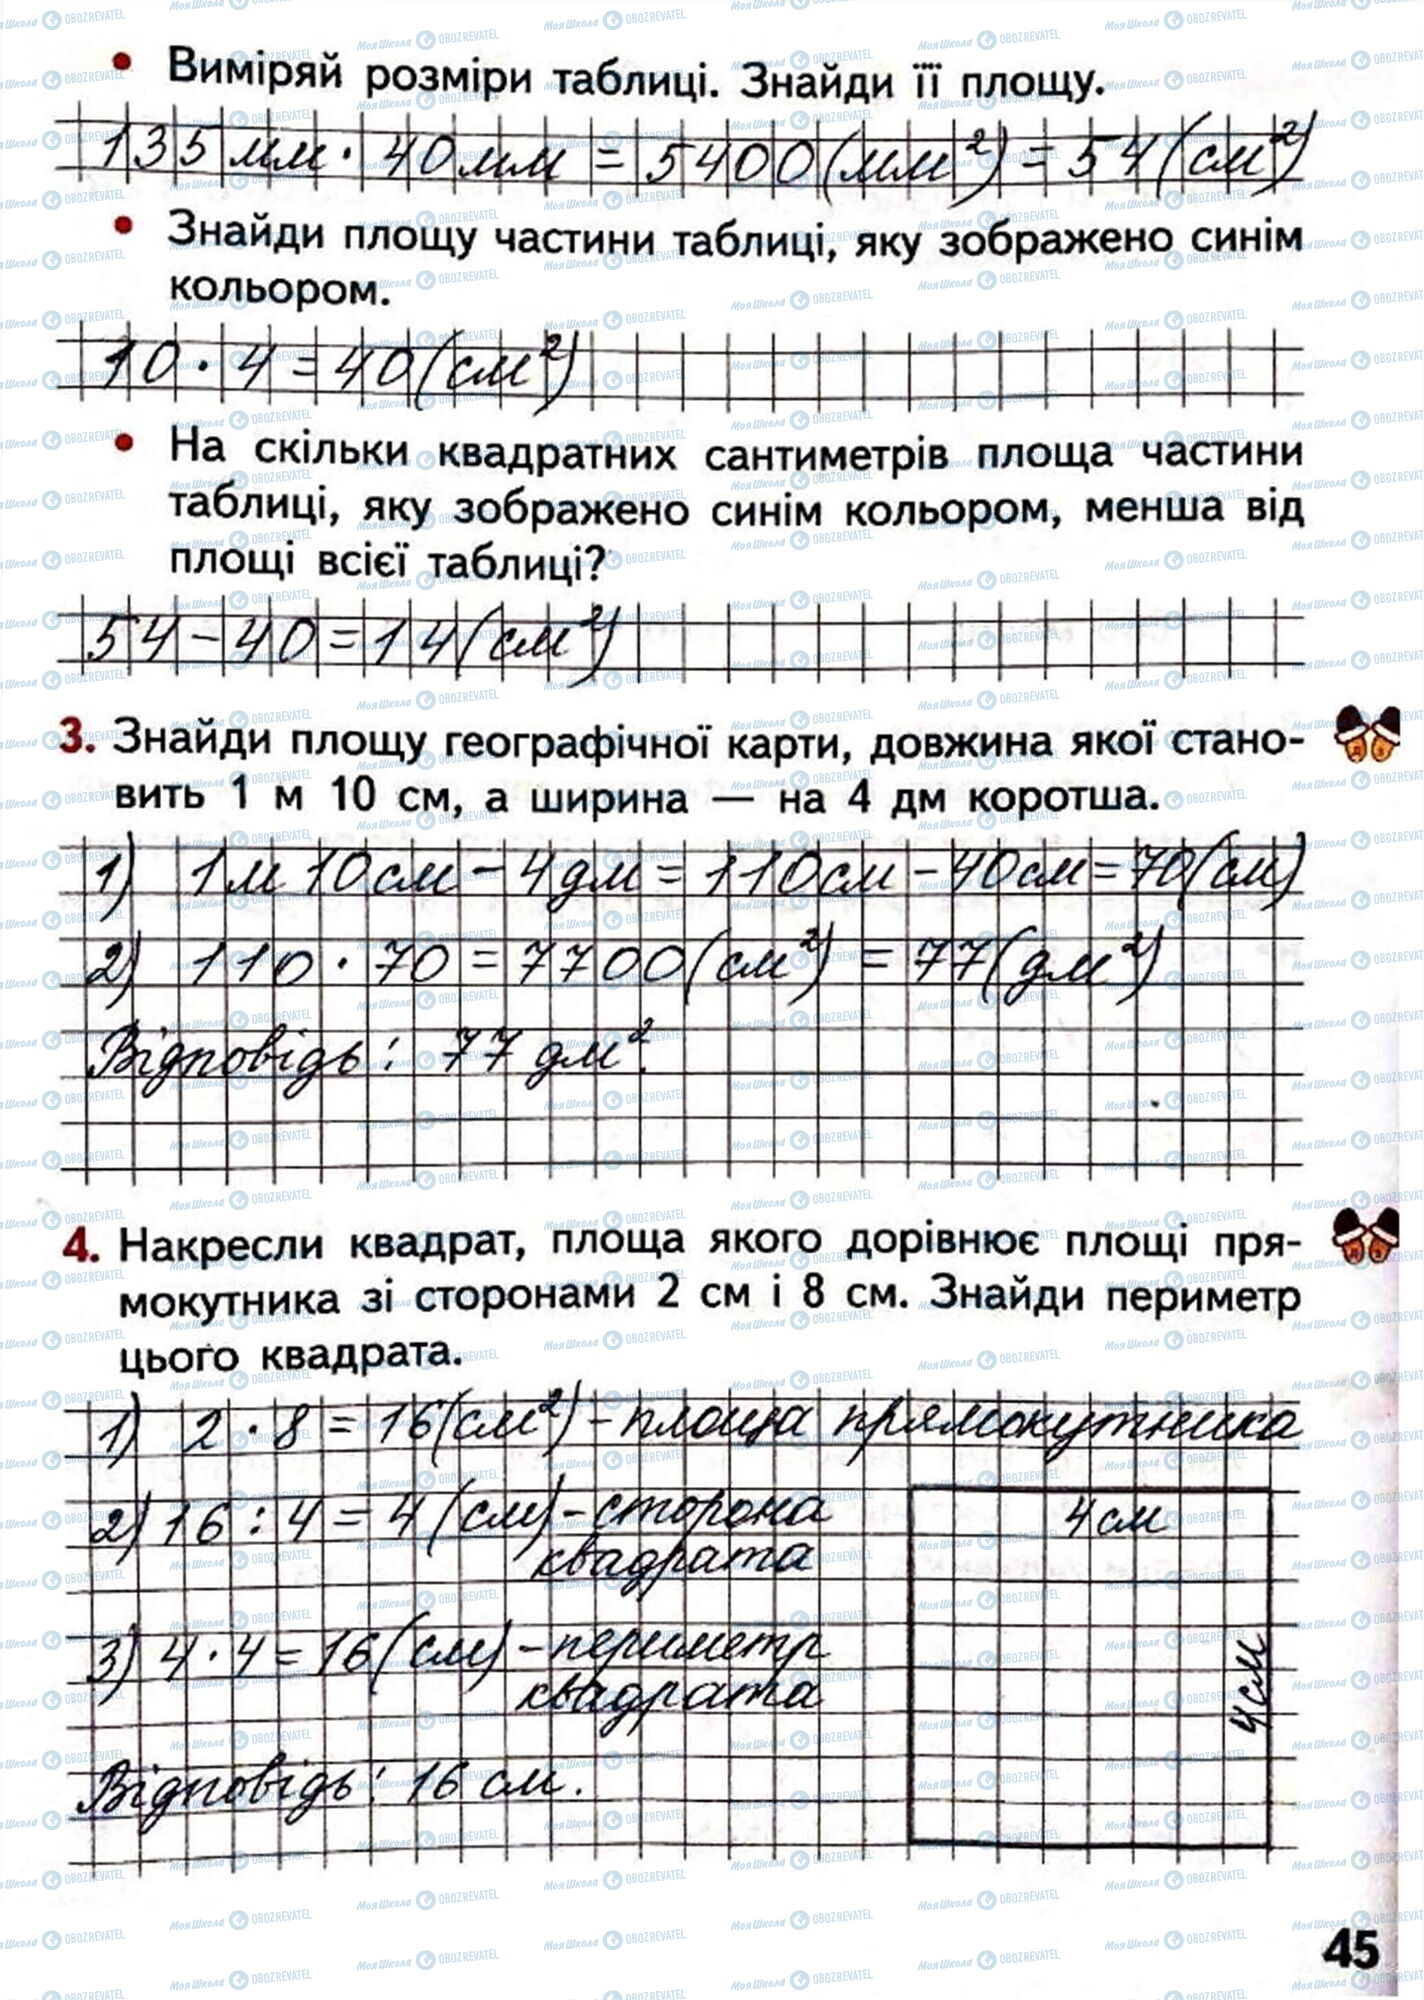 • Виміряй розміри таблиці. Знайди її площу.
135 мм · 40 мм = 5400 (мм²) = 54 (см²)
• Знайди площу частини таблиці, яку зображено синім
кольором.
10 · 4 = 40 (см²)
• На скільки квадратних сантиметрів площа частини
таблиці, яку зображено синім кольором, менша від
площі всієї таблиці?
54 – 40 = 14 (см²)
3. Знайди площу географічної карти, довжина якої стано-
вить 1 м 10 см, а ширина — на 4 дм коротша.
1) 1 м 10 см – 4 дм = 110 см – 40 см = 70 (см)
2) 110 · 70 = 7700 (см²) = 77 (дм²)
Відповідь: 77 дм².
4. Накресли квадрат, площа якого дорівнює площі пря-
мокутника зі сторонами 2 см і 8 см. Знайди периметр
цього квадрата.
1) 2 · 8 = 16 (см²) – площа прямокутника
2) 16 : 4 = 4 (см) – сторона
квадрата
4 см
3) 4 · 4 = 16 (см) – периметр
квадрата
4 см
Відповідь: 16 см.
45
МояШкола OBOZREVATEL